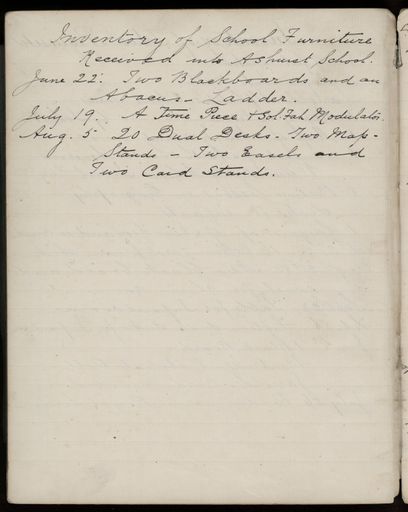 Inventory of School Furniture
Received into Ashurst School.
June 22. Two Blackboards and an
Abacus - Ladder.
July 19. A Time Piece & Sol Fah Modulator.
Aug. 5 20 Dual Desks - Two Map -
Stands - Two Easels and
Two Card Stands.